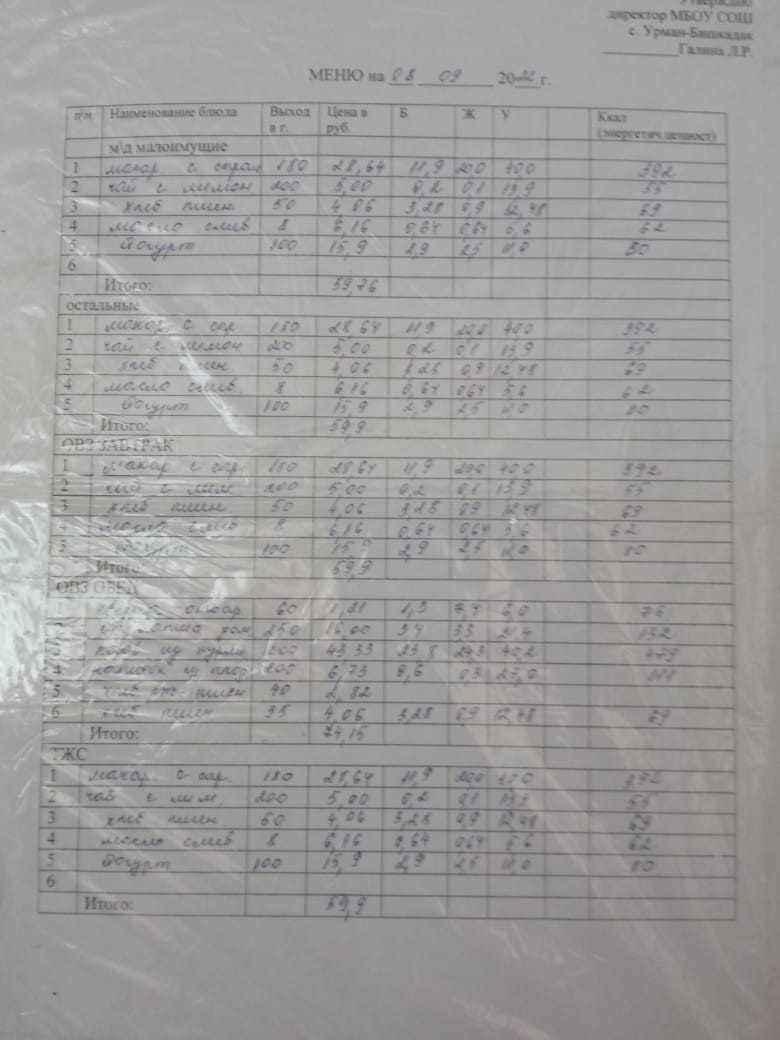 Утверждаю
директор МБОУ СОШ
с. Урман-Бишкадак
Галина Л.Р.
МЕНЮ на 08 09 20 г.
п\н Наименование блюда Выход в г. Цена в руб. Б Ж У Ккал (энергетич.ценност)
м\д малоимущие
1 макар с сыром 180 28,64 11,9 20,0 40,0 392
2 чай с лимон 200 5,00 0,2 0,1 13,9 55
3 хлеб пшен 50 4,06 3,28 0,9 12,48 69
4 масло слив 8 6,16 0,64 0,64 5,6 62
5 йогурт 100 15,9 2,9 2,5 11,0 80
6
Итого: 59,76
остальные
1 макар с сыр. 180 28,64 11,9 20,0 40,0 392
2 чай с лимон 200 5,00 0,2 0,1 13,9 55
3 хлеб пшен 50 4,06 3,28 0,9 12,48 69
4 масло слив. 8 6,16 0,64 0,64 5,6 62
5 йогурт 100 15,9 2,9 2,5 11,0 80
Итого: 59,9
ОВЗ ЗАВТРАК
1 макар с сыр. 180 28,64 11,9 20,0 40,0 392
2 чай с лим. 200 5,00 0,2 0,1 13,9 55
3 хлеб пшен. 50 4,06 3,28 0,9 12,48 69
4 масло слив 8 6,16 0,64 0,64 5,6 62
5 йогурт 100 15,9 2,9 2,5 11,0 80
Итого: 59,9
ОВЗ ОБЕД
1 отвар 60 1,3 7,4 6,0 76
2 лапша дом 250 16,00 3,4 21,4 132
3 плов из курицы 200 43,33 23,8 40,2 479
4 напиток из плод 200 6,73 0,6 0,3 27,0 111
5 хлеб рж. пшен 40 2,82
6 хлеб пшен 35 4,06 3,28 0,9 12,48 69
Итого: 74,15
ТЖС
1 макар. с сыр. 180 28,64 11,9 20,0 40,0 392
2 чай с лим. 200 5,00 0,2 0,1 13,9 55
3 хлеб пшен. 50 4,06 3,28 0,9 12,48 69
4 масло слив 8 6,16 0,64 0,64 5,6 62
5 йогурт 100 15,9 2,9 2,5 11,0 80
6
Итого: 59,9